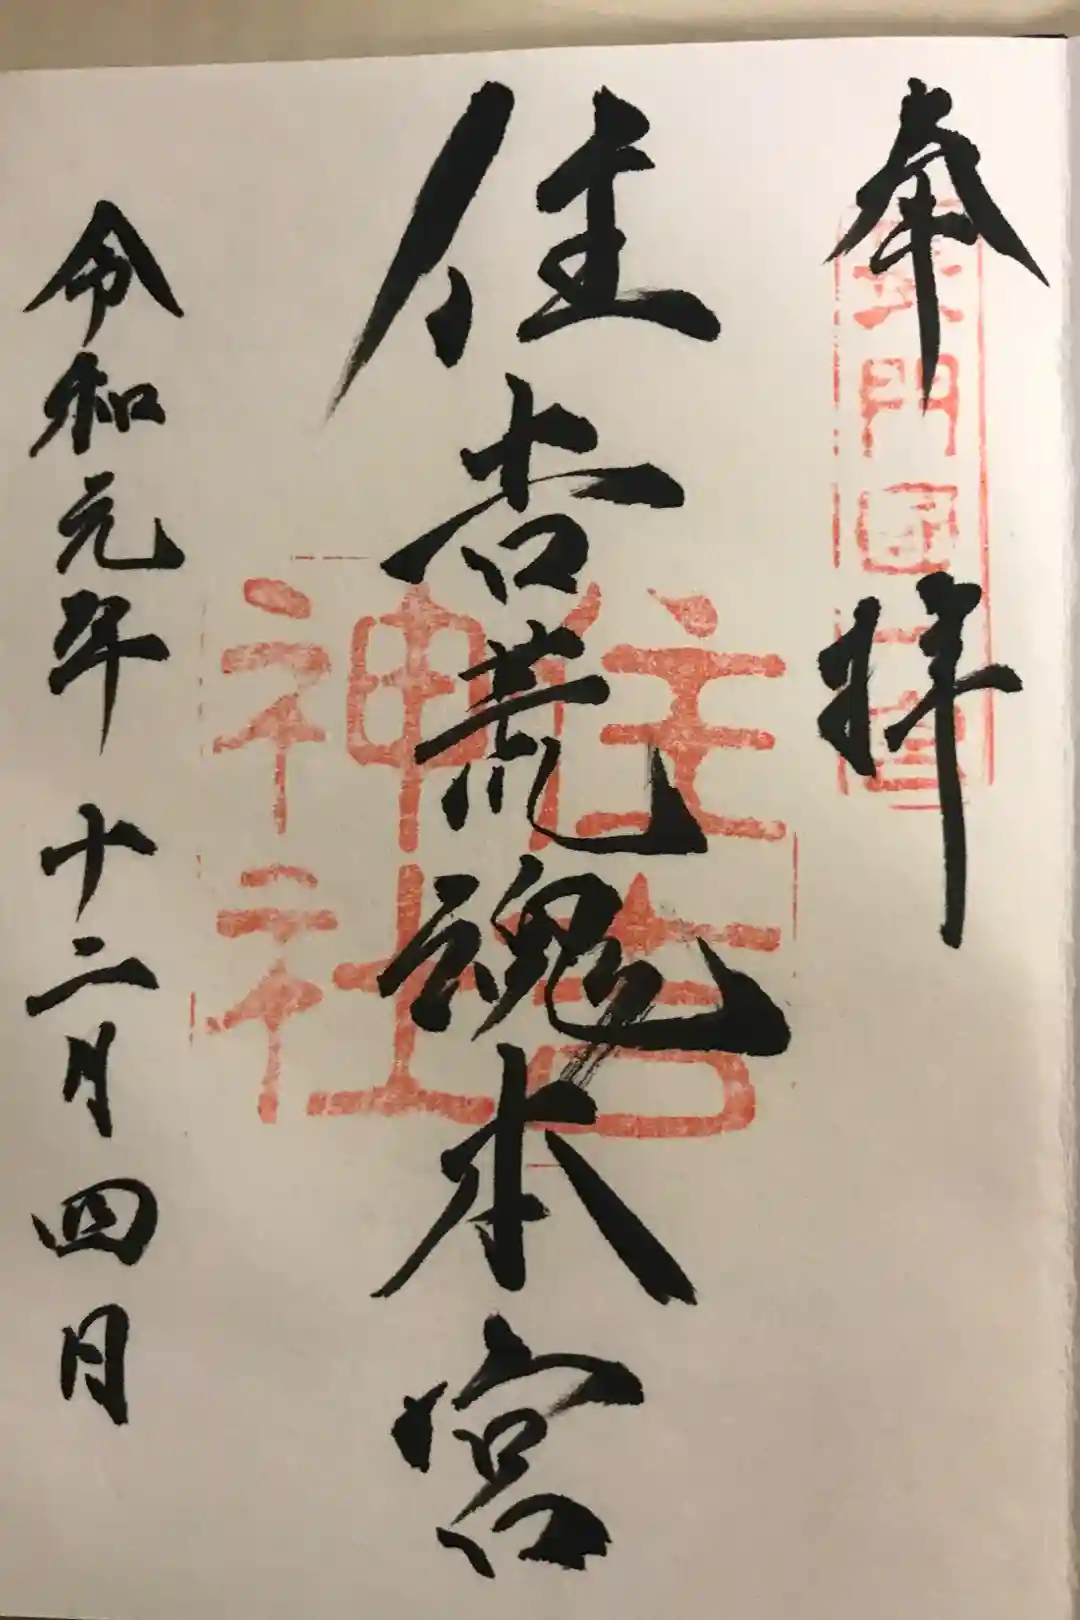 奉拝
長門国一宮
住吉荒魂本宮
住吉神社
令和元年十二月四日